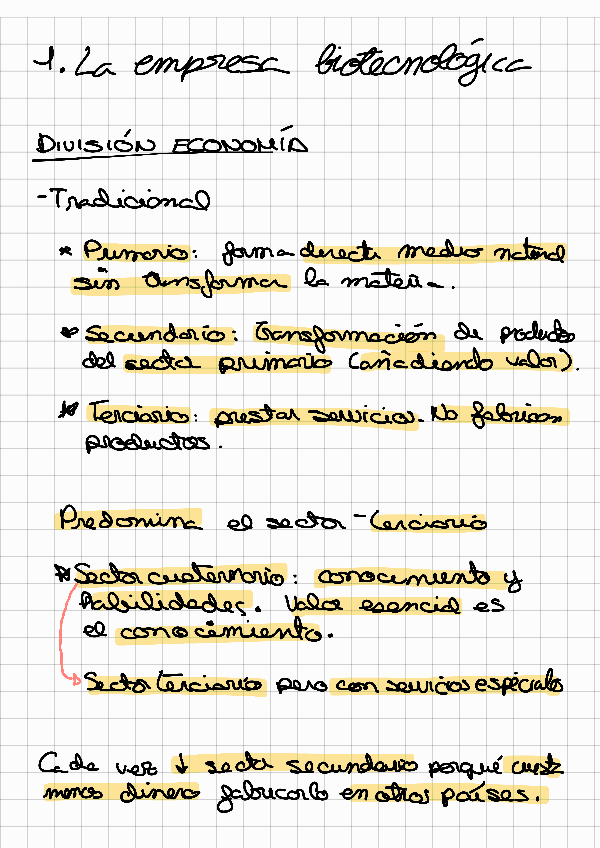 1. La empresa biotecnológica
DIVISIÓN ECONOMÍA
-Tradicional
* Primario: forma directa medio natural
sin transformar la materia.
* Secundario: Transformación de productos
del sector primario (añadiendo valor).
* Terciario: prestar servicios. No fabrican
productos.
Predomina el sector -terciario
* Sector cuaternario: conocimiento y
habilidades. Valor esencial es
el conocimiento.
Sector terciario pero con servicios especiales
Cada vez ↓ sector secundario porqué cuesta
menos dinero fabricarlo en otros países.